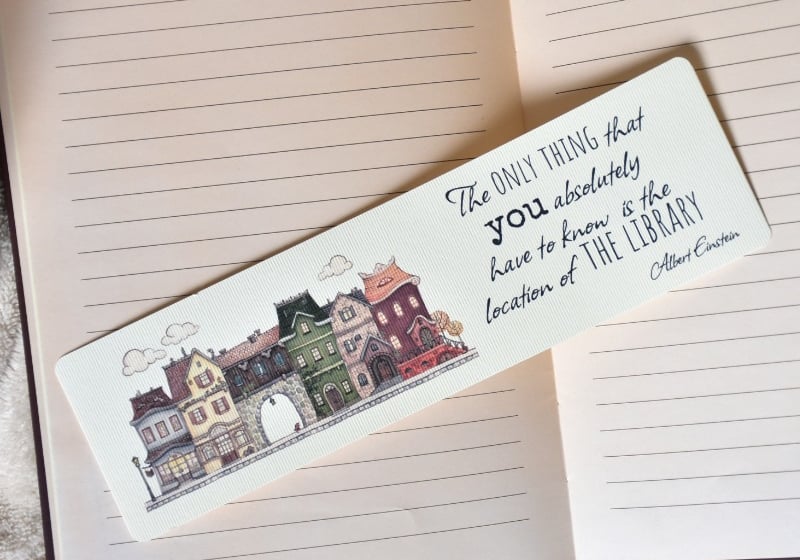 The ONLY THING that
you absolutely
have to know is the
location of THE LIBRARY
Albert Einstein